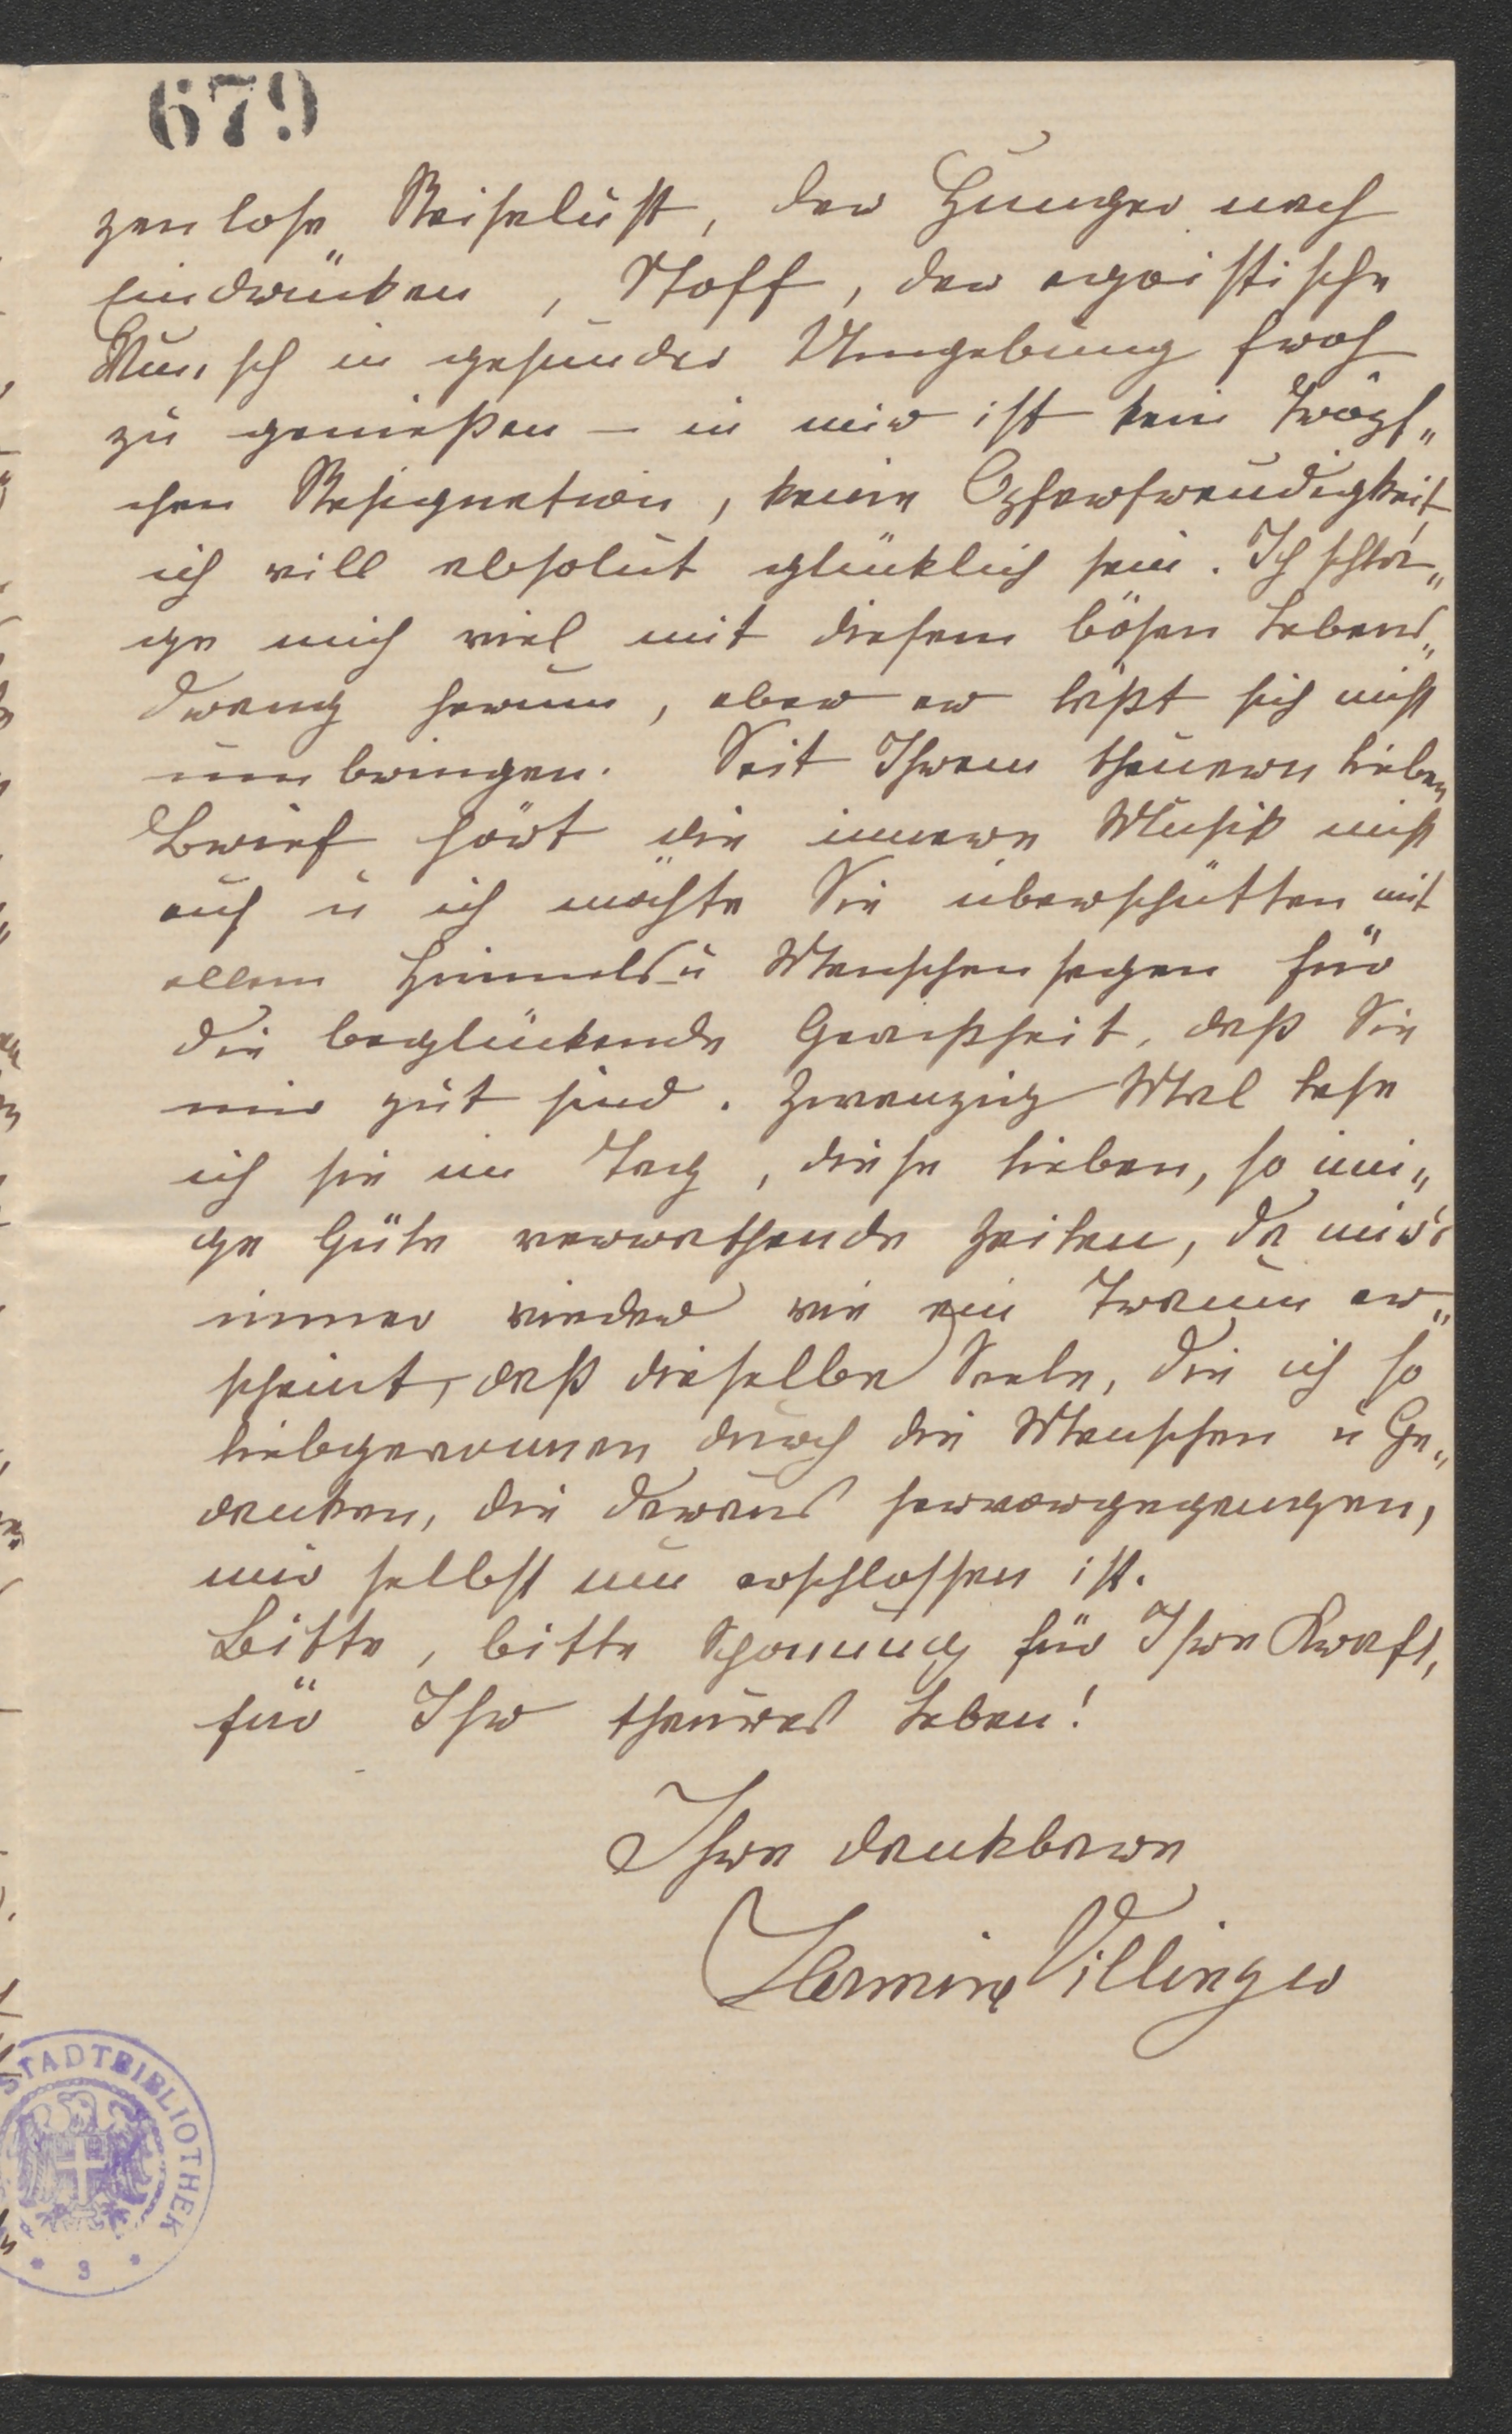 679
zenlose Reiselust, der Hunger nach
Eindrücken, Stoff, der egoistische
Wunsch in gesunder Umgebung froh
zu genießen – in mir ist kein Tröpf„
chen Resignation, keine Opferfreudigkeit,
ich will absolut glücklich sein. Ich schla„
ge mich viel mit diesem bösen Lebens„
drang herum, aber er läßt sich nicht
umbringen. Seit Ihrem theuern lieben
Brief hört die innere Musik nicht
auf u ich möchte Sie überschütten mit
allem Himmels- u Menschensegen für
die beglückende Gewißheit, daß Sie
mir gut sind. Zwanzig Mal lese
ich sie im Tag, diese lieben, so inni„
ge Güte verrathende Zeilen, da mir's
immer wieder wie ein Traum er„
scheint, daß dieselbe Seele, die ich so
liebgewonnen durch die Menschen u Ge„
danken, die daraus hervorgegangen,
mir selbst nun erschlossen ist.
Bitte, bitte Schonung für Ihre Kraft,
für Ihr theures Leben!
Ihre dankbare
Hermine Villinger
STADTBIBLIOTHEK
* 3 *